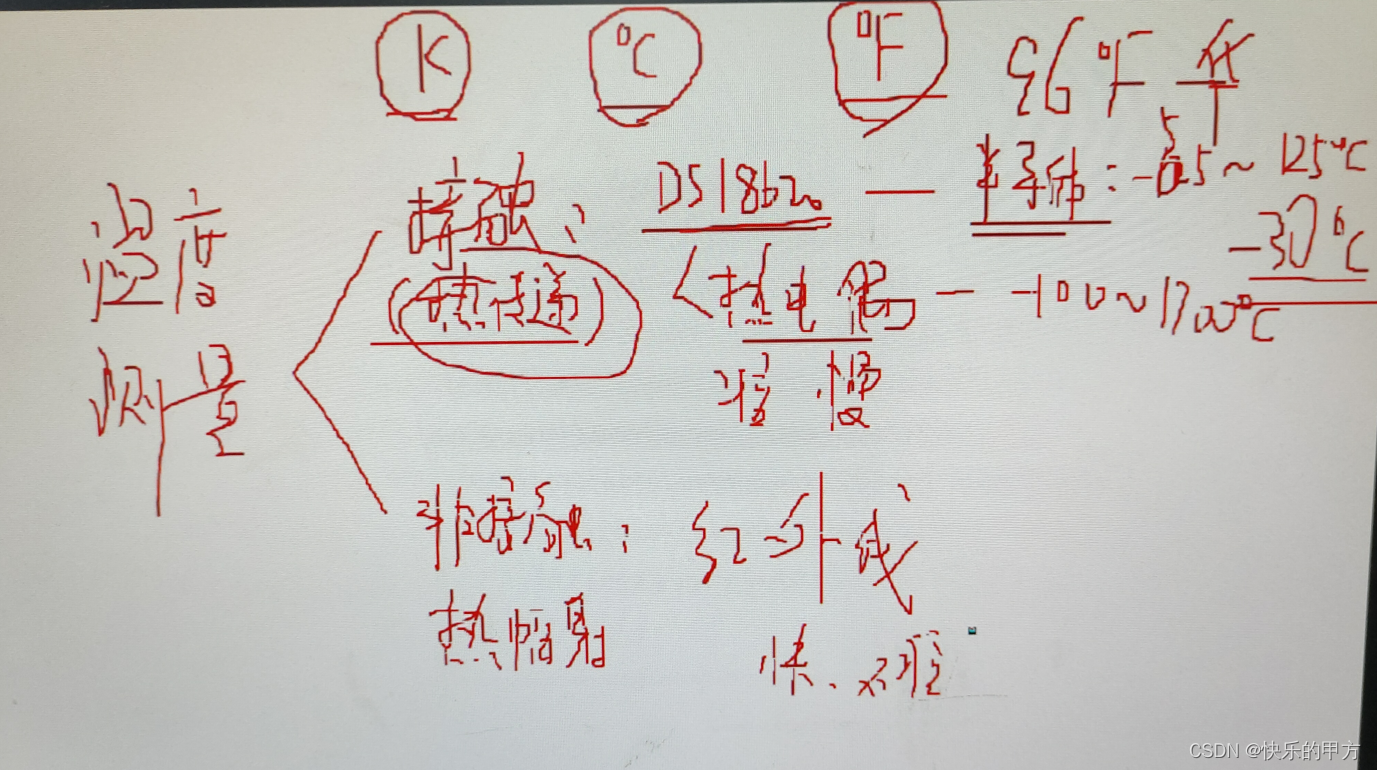 K °C °F 96°F
接触: DS18b20 — 半导体: -55~125°C
-30°C
温度 (热传递) 热电偶 — -100~1700°C
测量 准 慢
非接触: 红外线
热辐射 快、不准
CSDN @快乐的甲方